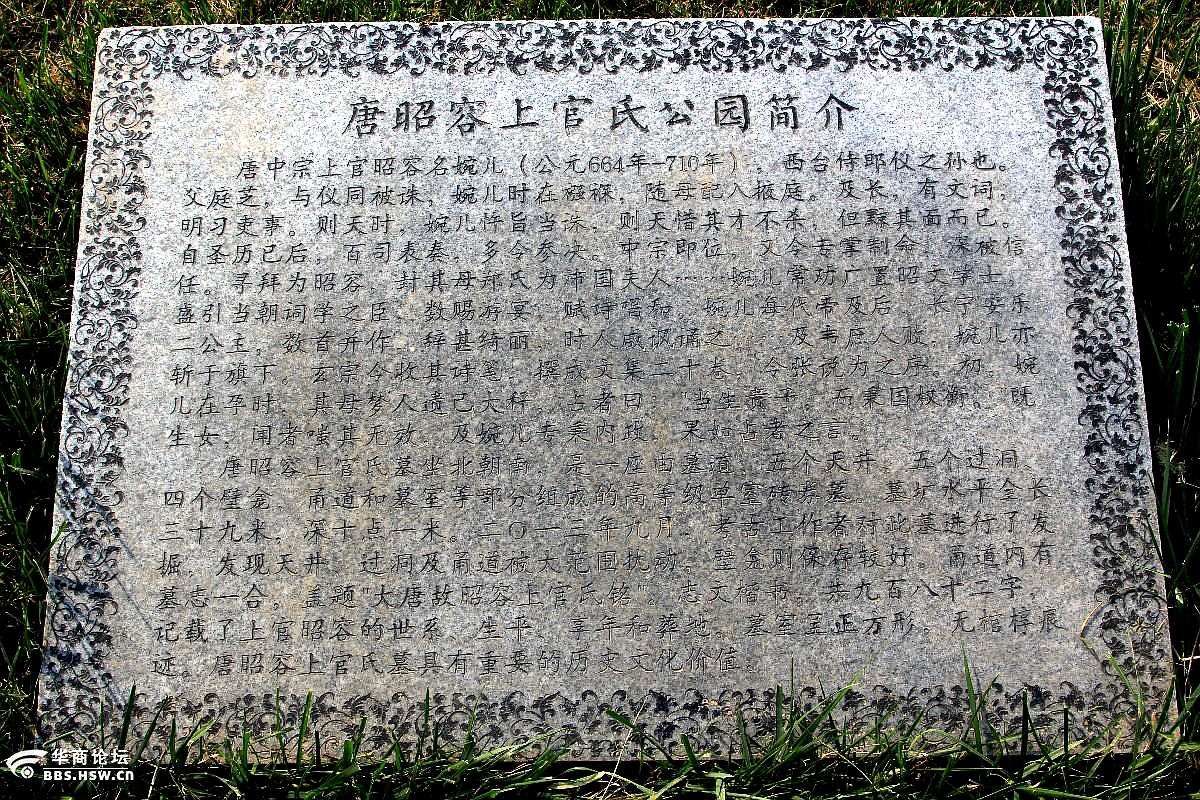 唐昭容上官氏公园简介
唐中宗上官昭容名婉儿（公元664年-710年），西台侍郎仪之孙也。
父庭芝，与仪同被诛，婉儿时在襁褓，随母配入掖庭。及长，有文词，
明习吏事。则天时，婉儿忤旨当诛，则天惜其才不杀，但黥其面而已。
自圣历已后，百司表奏，多令参决。中宗即位，又令专掌制命，深被信
任。寻拜为昭容，封其母郑氏为沛国夫人……婉儿常劝广置昭文学士，
盛引当朝词学之臣，数赐游宴，赋诗唱和，婉儿每代帝及后、长宁安乐
二公主，数首并作，辞甚绮丽，时人咸讽诵之……及韦庶人败，婉儿亦
斩于旗下。玄宗令收其诗笔，撰成文集二十卷，令张说为之序。初，婉
儿在孕时，其母梦人遗己大秤，占者曰："当生贵子，而秉国权衡。"既
生女，闻者嗤其无效，及婉儿专秉内政，果如占者之言。
唐昭容上官氏墓坐北朝南，是一座由墓道、五个天井、五个过洞、
四个壁龛、甬道和墓室等部分组成的高等级单室砖券墓，墓圹水平全长
三十九米，深十点一米。二〇一三年九月，考古工作者对此墓进行了发
掘，发现天井、过洞及甬道被大范围扰动，壁龛则保存较好。甬道内有
墓志一合，盖题"大唐故昭容上官氏铭"。志文楷书，共九百八十二字，
记载了上官昭容的世系、生平、享年和葬地。墓室呈正方形，无棺椁痕
迹。唐昭容上官氏墓具有重要的历史文化价值。
华商论坛
BBS.HSW.CN